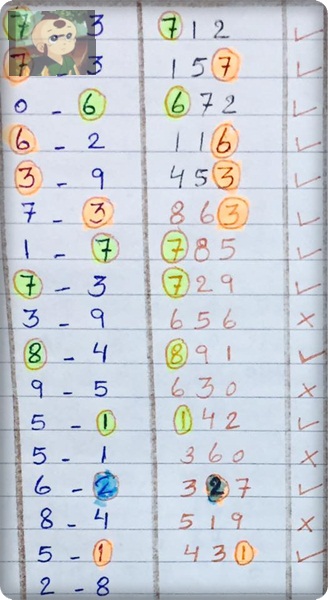 7 - 3 712 ✓
7 - 3 157 ✓
0 - 6 672 ✓
6 - 2 116 ✓
3 - 9 453 ✓
7 - 3 863 ✓
1 - 7 785 ✓
7 - 3 729 ✓
3 - 9 656 ×
8 - 4 891 ✓
9 - 5 630 ×
5 - 1 142 ✓
5 - 1 360 ×
6 - 2 327 ✓
8 - 4 519 ×
5 - 1 431 ✓
2 - 8